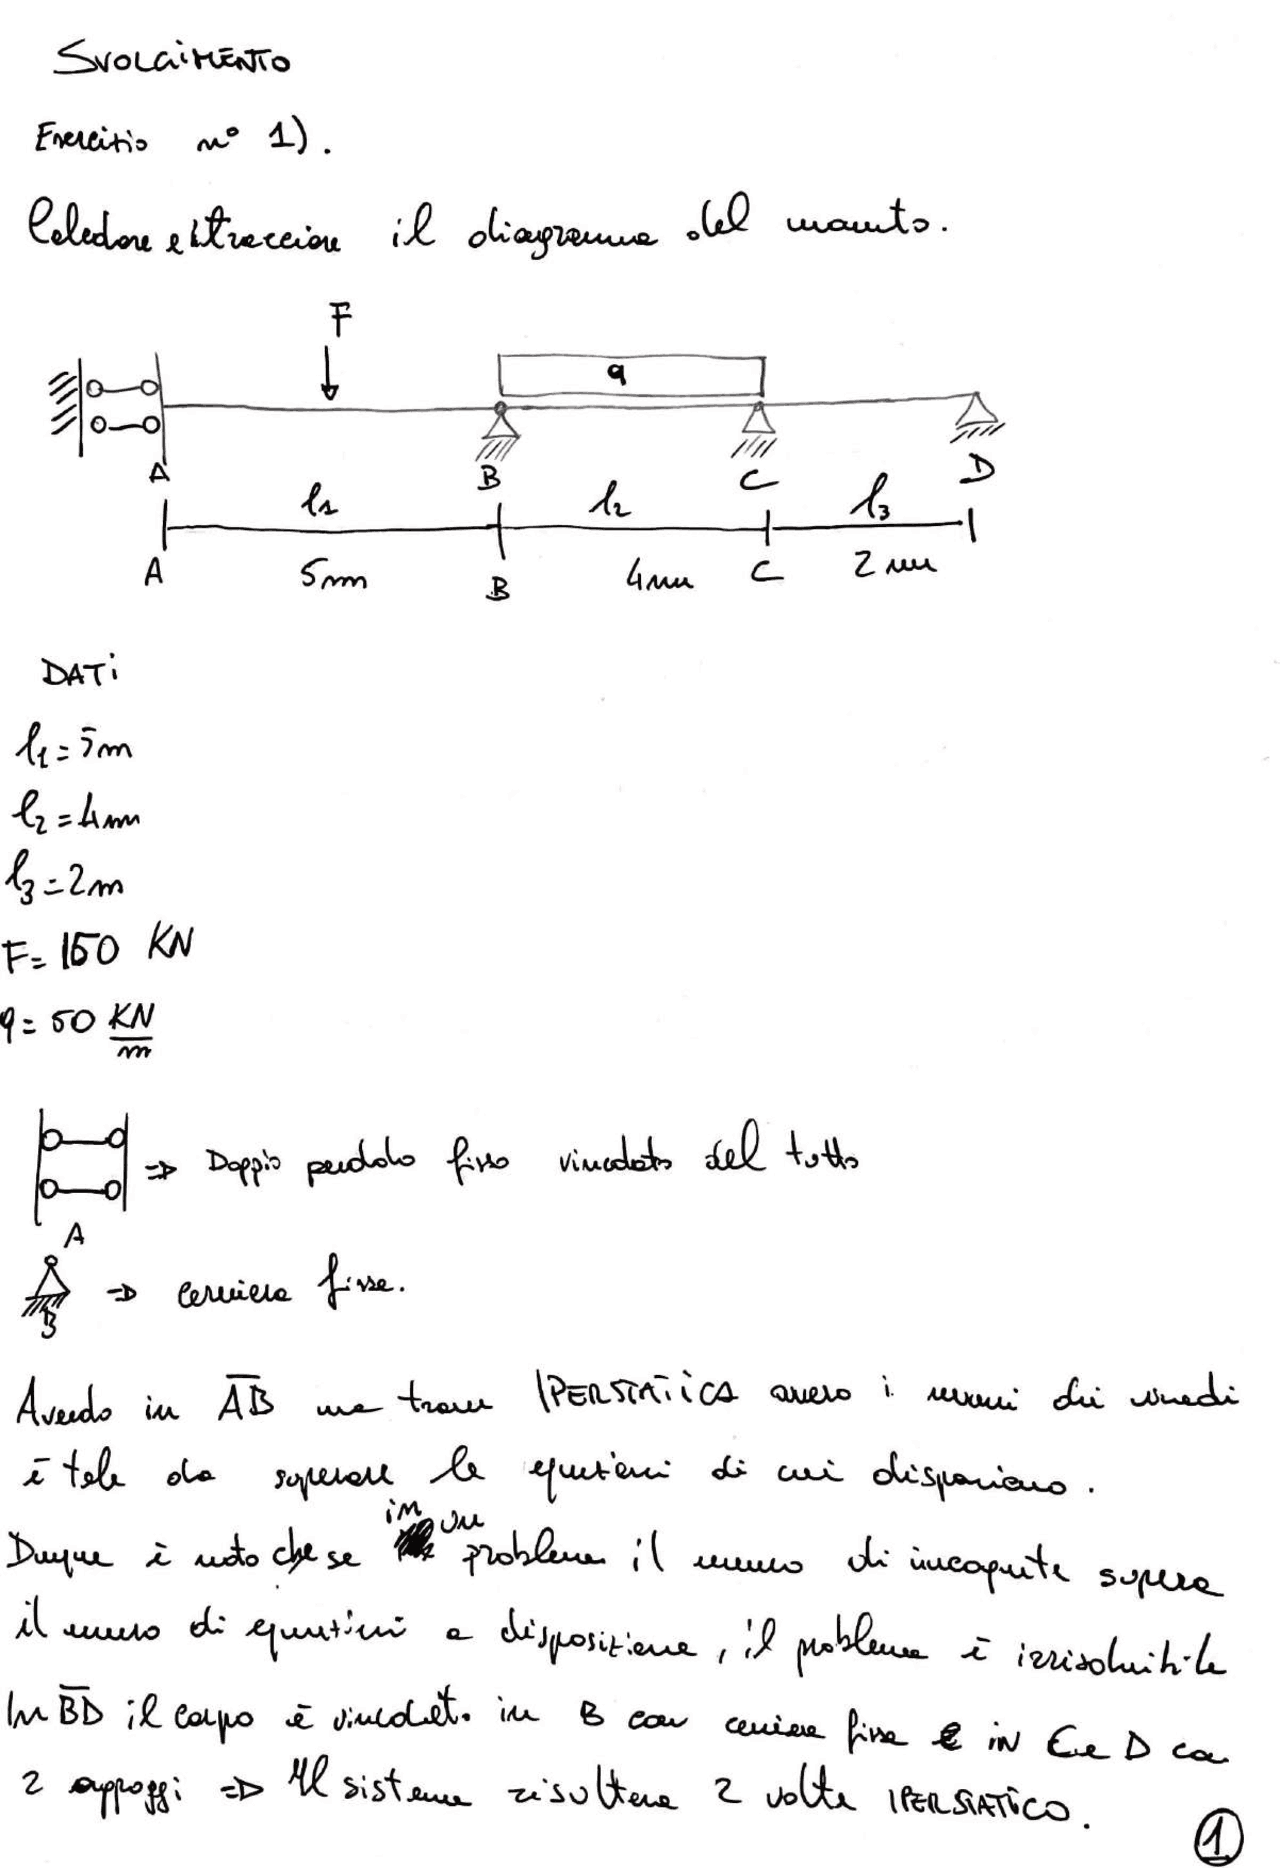 SVOLGIMENTO
Esercizio n° 1).
Calcolare e tracciare il diagramma del momento.
F
q
A B C D
l1 l2 l3
A 5m B 4m C 2m
DATI
l1=5m
l2=4m
l3=2m
F=150 KN
q=50 KN/m
⇒ Doppio pendolo fisso vincolato del tutto
A
⇒ cerniera fissa.
B
Avendo in AB una trave IPERSTATICA ovvero i numeri dei vincoli
è tale da superare le equazioni di cui disponiamo.
Dunque è noto che se in un problema il numero di incognite supera
il numero di equazioni a disposizione, il problema è irrisolvibile
In BD il corpo è vincolato in B con cerniera fissa e in C e D con
2 appoggi ⇒ Il sistema risultera 2 volte IPERSTATICO.
1